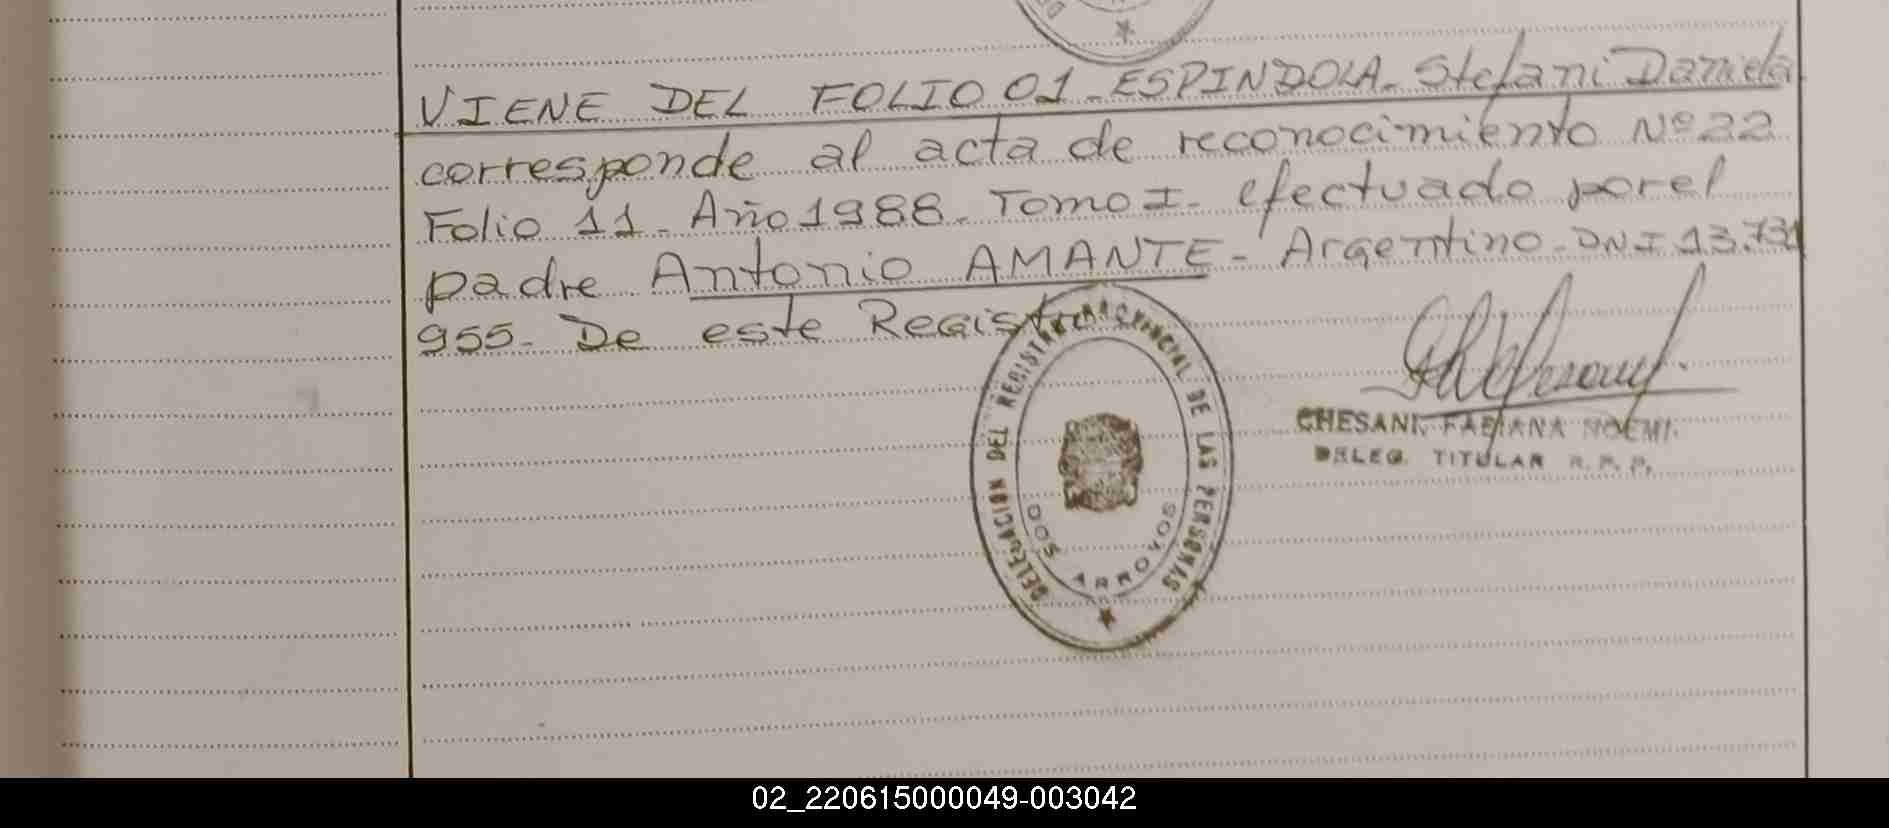 VIENE DEL FOLIO 01 - ESPINDOLA - Stefani Daniela
corresponde al acta de reconocimiento Nº 22
Folio 11 - Año 1988 - Tomo I - efectuado por el
padre Antonio AMANTE - Argentino - DNI 13.731
955 - De este Registro
DELEGACION DEL REGISTRO PROVINCIAL DE LAS PERSONAS
DOS ARROYOS
GHESANI, FABIANA NOEMI
DELEG. TITULAR R. P. P.
02_220615000049-003042